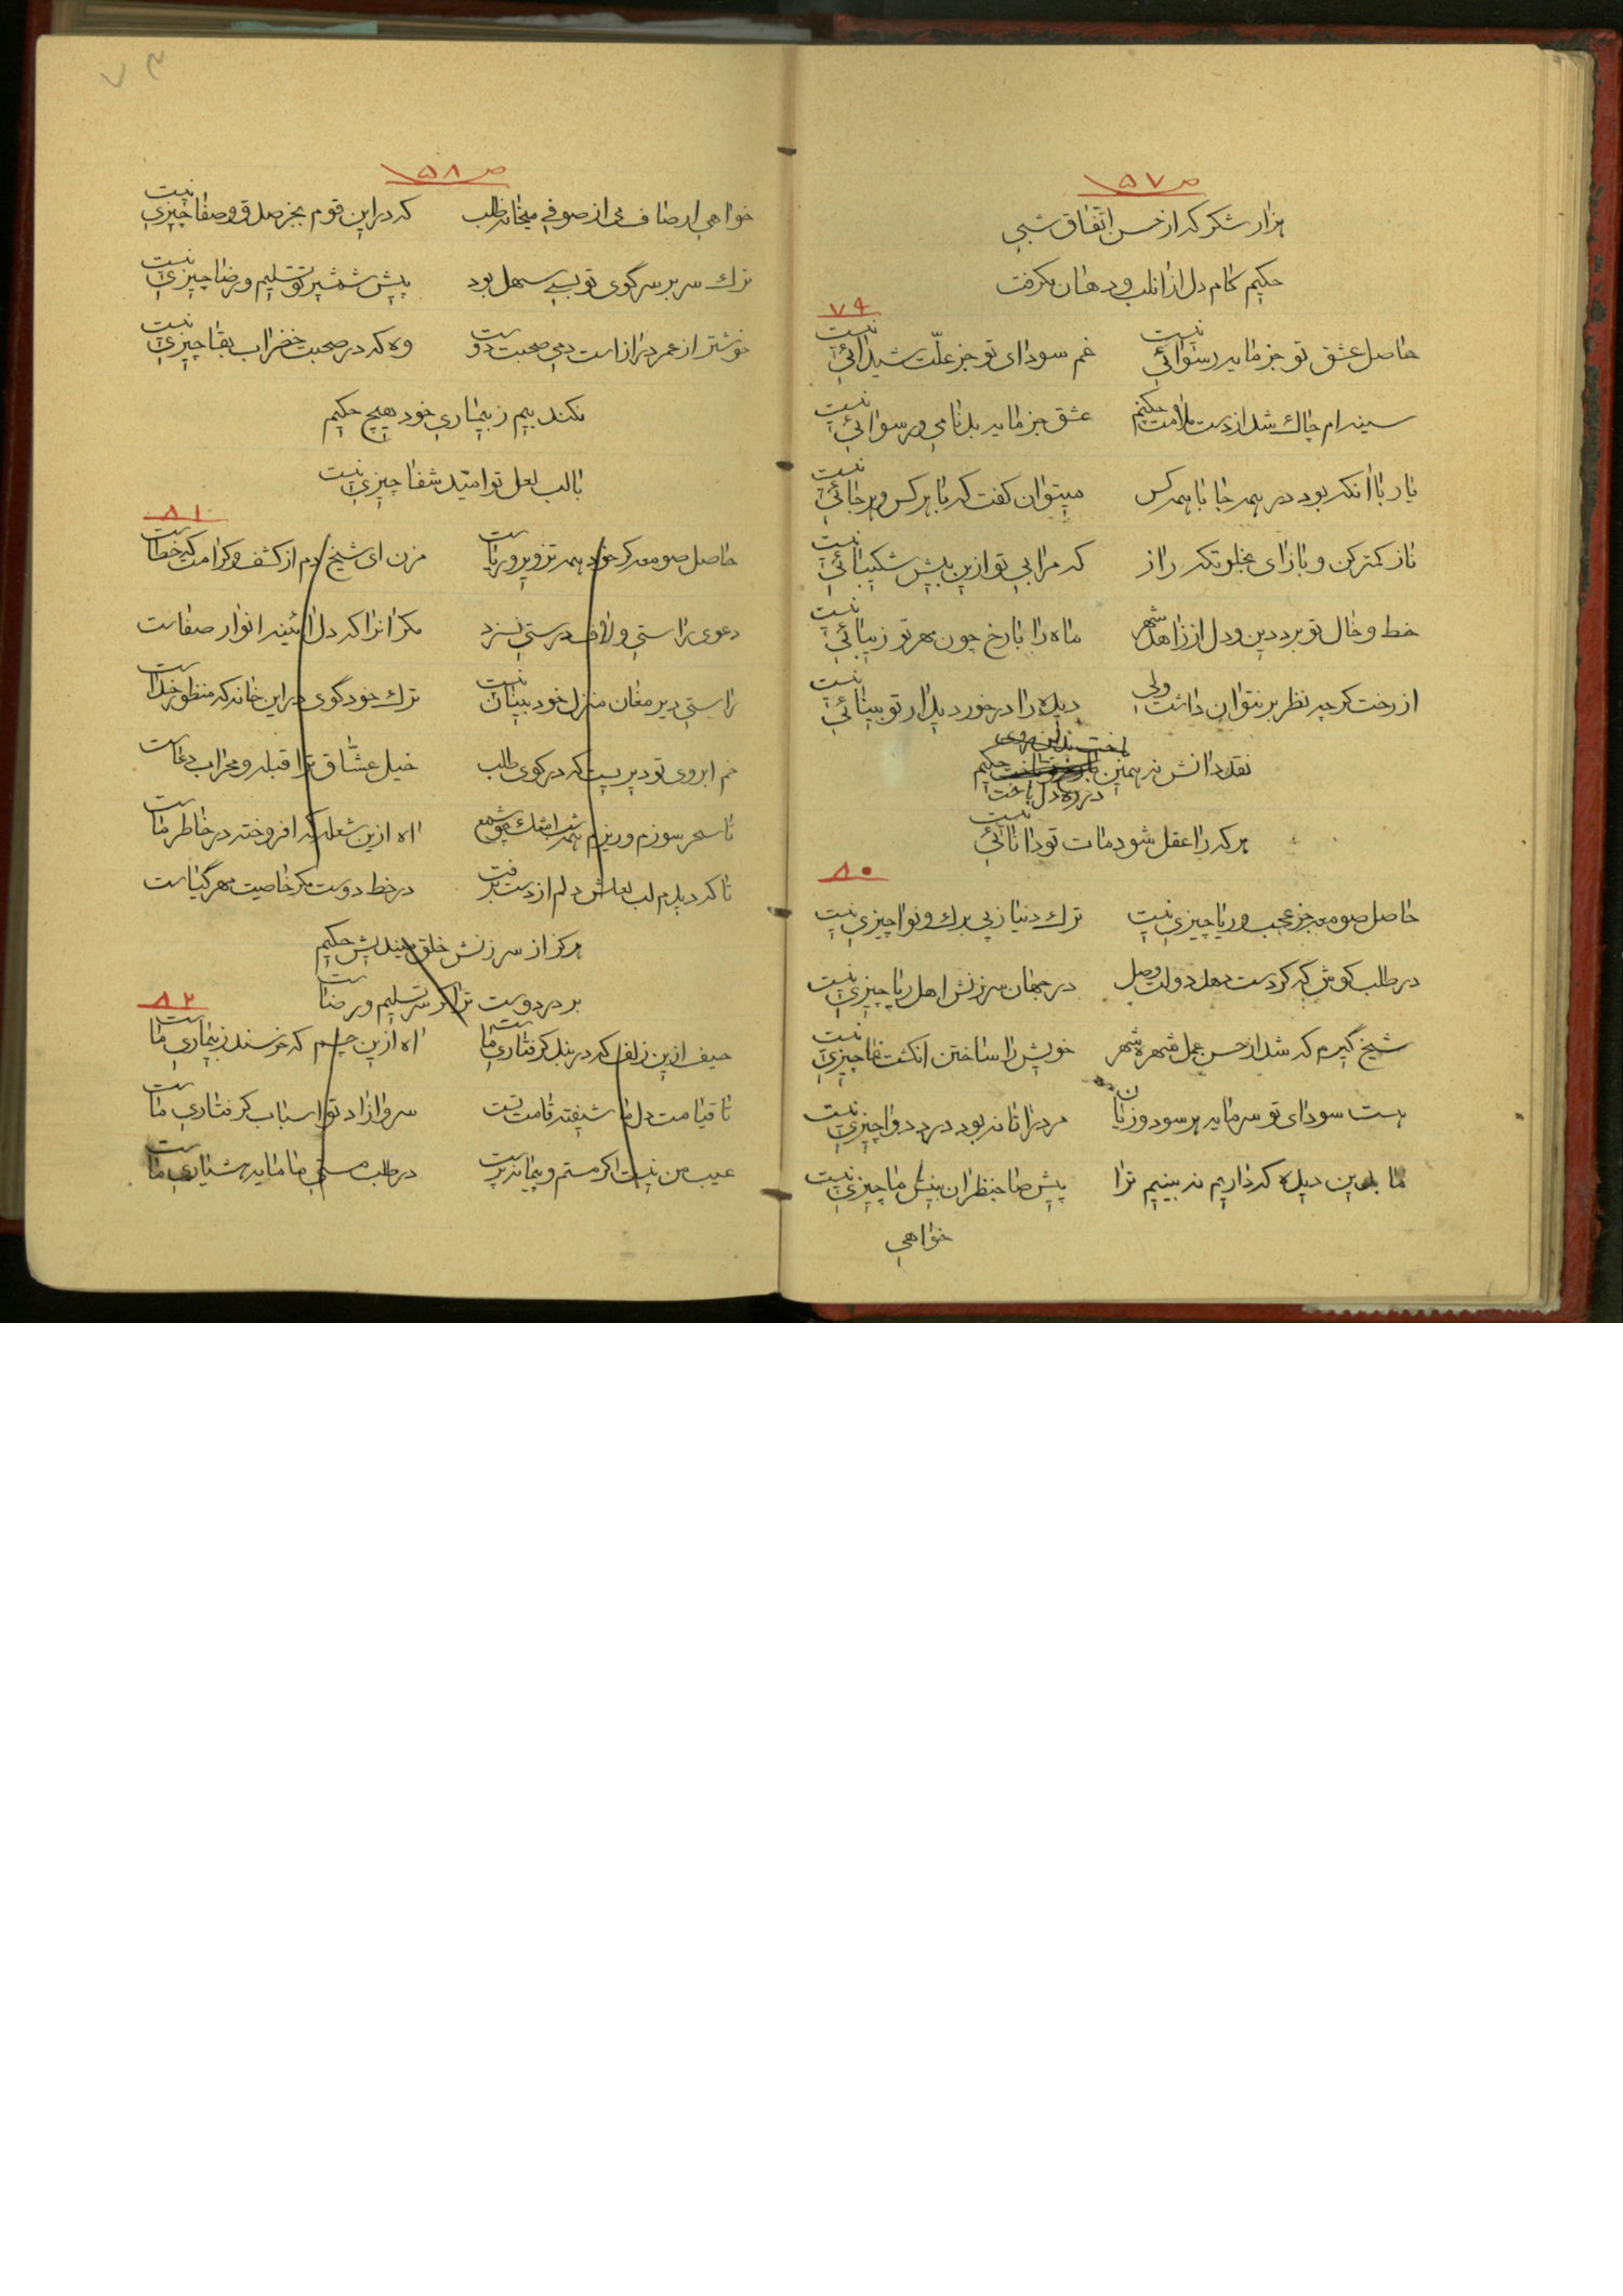 ص ۵۷
هزار شکر که از حسن اتّفاق شبی
حکیم کام دل از ان لب و دهان بگرفت
۷۹
حاصل عشق تو جز مایه رسوائی نیست غم سودای تو جز علّت شیدائی نیست
سینه ام چاک شد از دست ملامت حکیم عشق جز مایه بدنامی و رسوائی نیست
یار با انکه بود در همه جا با همه کس میتوان گفت که با هر کس و هر جائی نیست
ناز کمتر کن و باز ای بخلوتگه راز که مرا بی تو ازین بیش شکیبائی نیست
خط و خال تو برد دین و دل از زاهد شهر ماه را با رخ چون مهر تو زیبائی نیست
از رخت گرچه نظر بر نتوان داشت ولی دیده را در خور دیدار تو بینائی نیست
نقد دانش نه همین در ره دل باخت حکیم
هر که را عقل شود مات تو دانائی نیست
۸۰
حاصل صومعه جز عجب و ریا چیزی نیست ترک دنیا ز پی برک و نوا چیزی نیست
در طلب کوش که گر دست دهد دولت وصل در جهان سرزنش اهل ریا چیزی نیست
شیخ گیرم که شد از حسن عمل شهره شهر خویش را ساختن انگشت نما چیزی نیست
هست سودای تو سرمایه هر سود و زیان مرد را تا نه بود درد دوا چیزی نیست
ما بدین دیده که داریم نه بینیم ترا پیش صاحبنظران بینش ما چیزی نیست
خواهی
ص ۵۸
خواهی ار صاف می از صوفی میخانه طلب که در این قوم بجز صدق و صفا چیزی نیست
ترک سر بر سر کوی تو بسی سهل بود پیش شمشیر تو تسلیم و رضا چیزی نیست
خوشتر از عمر دراز است دمی صحبت دوست وه که در صحبت خضر اب بقا چیزی نیست
نکند بیم ز بیماری خود هیچ حکیم
با لب لعل تو امّید شفا چیزی نیست
۸۱
حاصل صومعه گر خود همه تزویر و ریاست مزن ای شیخ دم از کشف و کرامت که خطاست
دعوی راستی و لاف درستی نسزد مگر انرا که دل ائینه انوار صفاست
راستی دیر مغان منزل خود بینان نیست ترک خود گوی در این خانه که منظور خداست
خم ابروی تو دیریست که در کوی طلب خیل عشّاق ترا قبله و محراب دعاست
تا سحر سوزم و ریزم همه شب اشک چو شمع اه ازین شعله که افروخته در خاطر ماست
تا که دیدم لب لعلش دلم از دست برفت در خط دوست مگر خاصیت مهر گیاست
هرگز از سرزنش خلق میندیش حکیم
بر در دوست ترا گر سر تسلیم و رضاست
۸۲
حیف ازین زلف که در بند گرفتاری ماست اه ازین چشم که خرسند ز بیماری ماست
تا قیامت دل ما شیفته قامت تست سرو ازاد تو اسباب گرفتاری ماست
عیب من نیست اگر مستم و پیمانه پرست در طلب مستی ما مایه هشیاری ماست